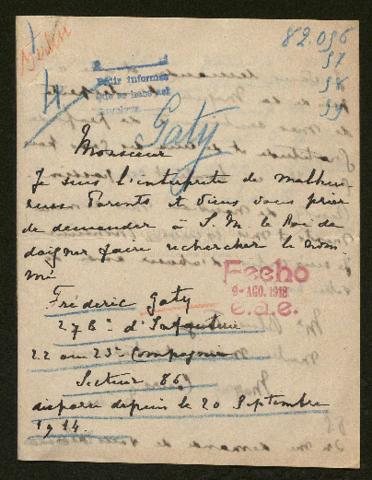 82.096
97
98
99
Pedir informes
Gaty
Monsieur
Je suis l'interprete de malheu-
reux Parents et viens vous prier
de demander à S. M. le Roi de
daigner faire rechercher le nom
mé
Fecho
9-AGO.1918
e.a.e.
Fréderic Gaty
278e d'Infanterie
22 ou 23e Compagnie
Secteur 86
disparu depuis le 20 Septembre
1914.